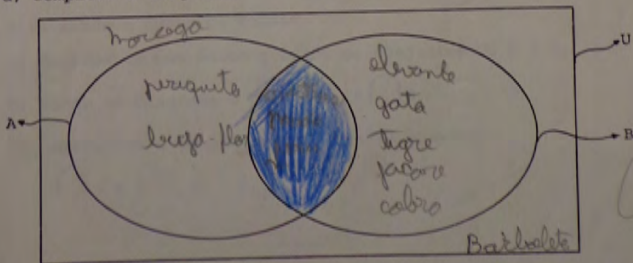 morcego
U
A
B
periquito
beija-flor
elevante
gata
tigre
jacore
cobra
Barbolete